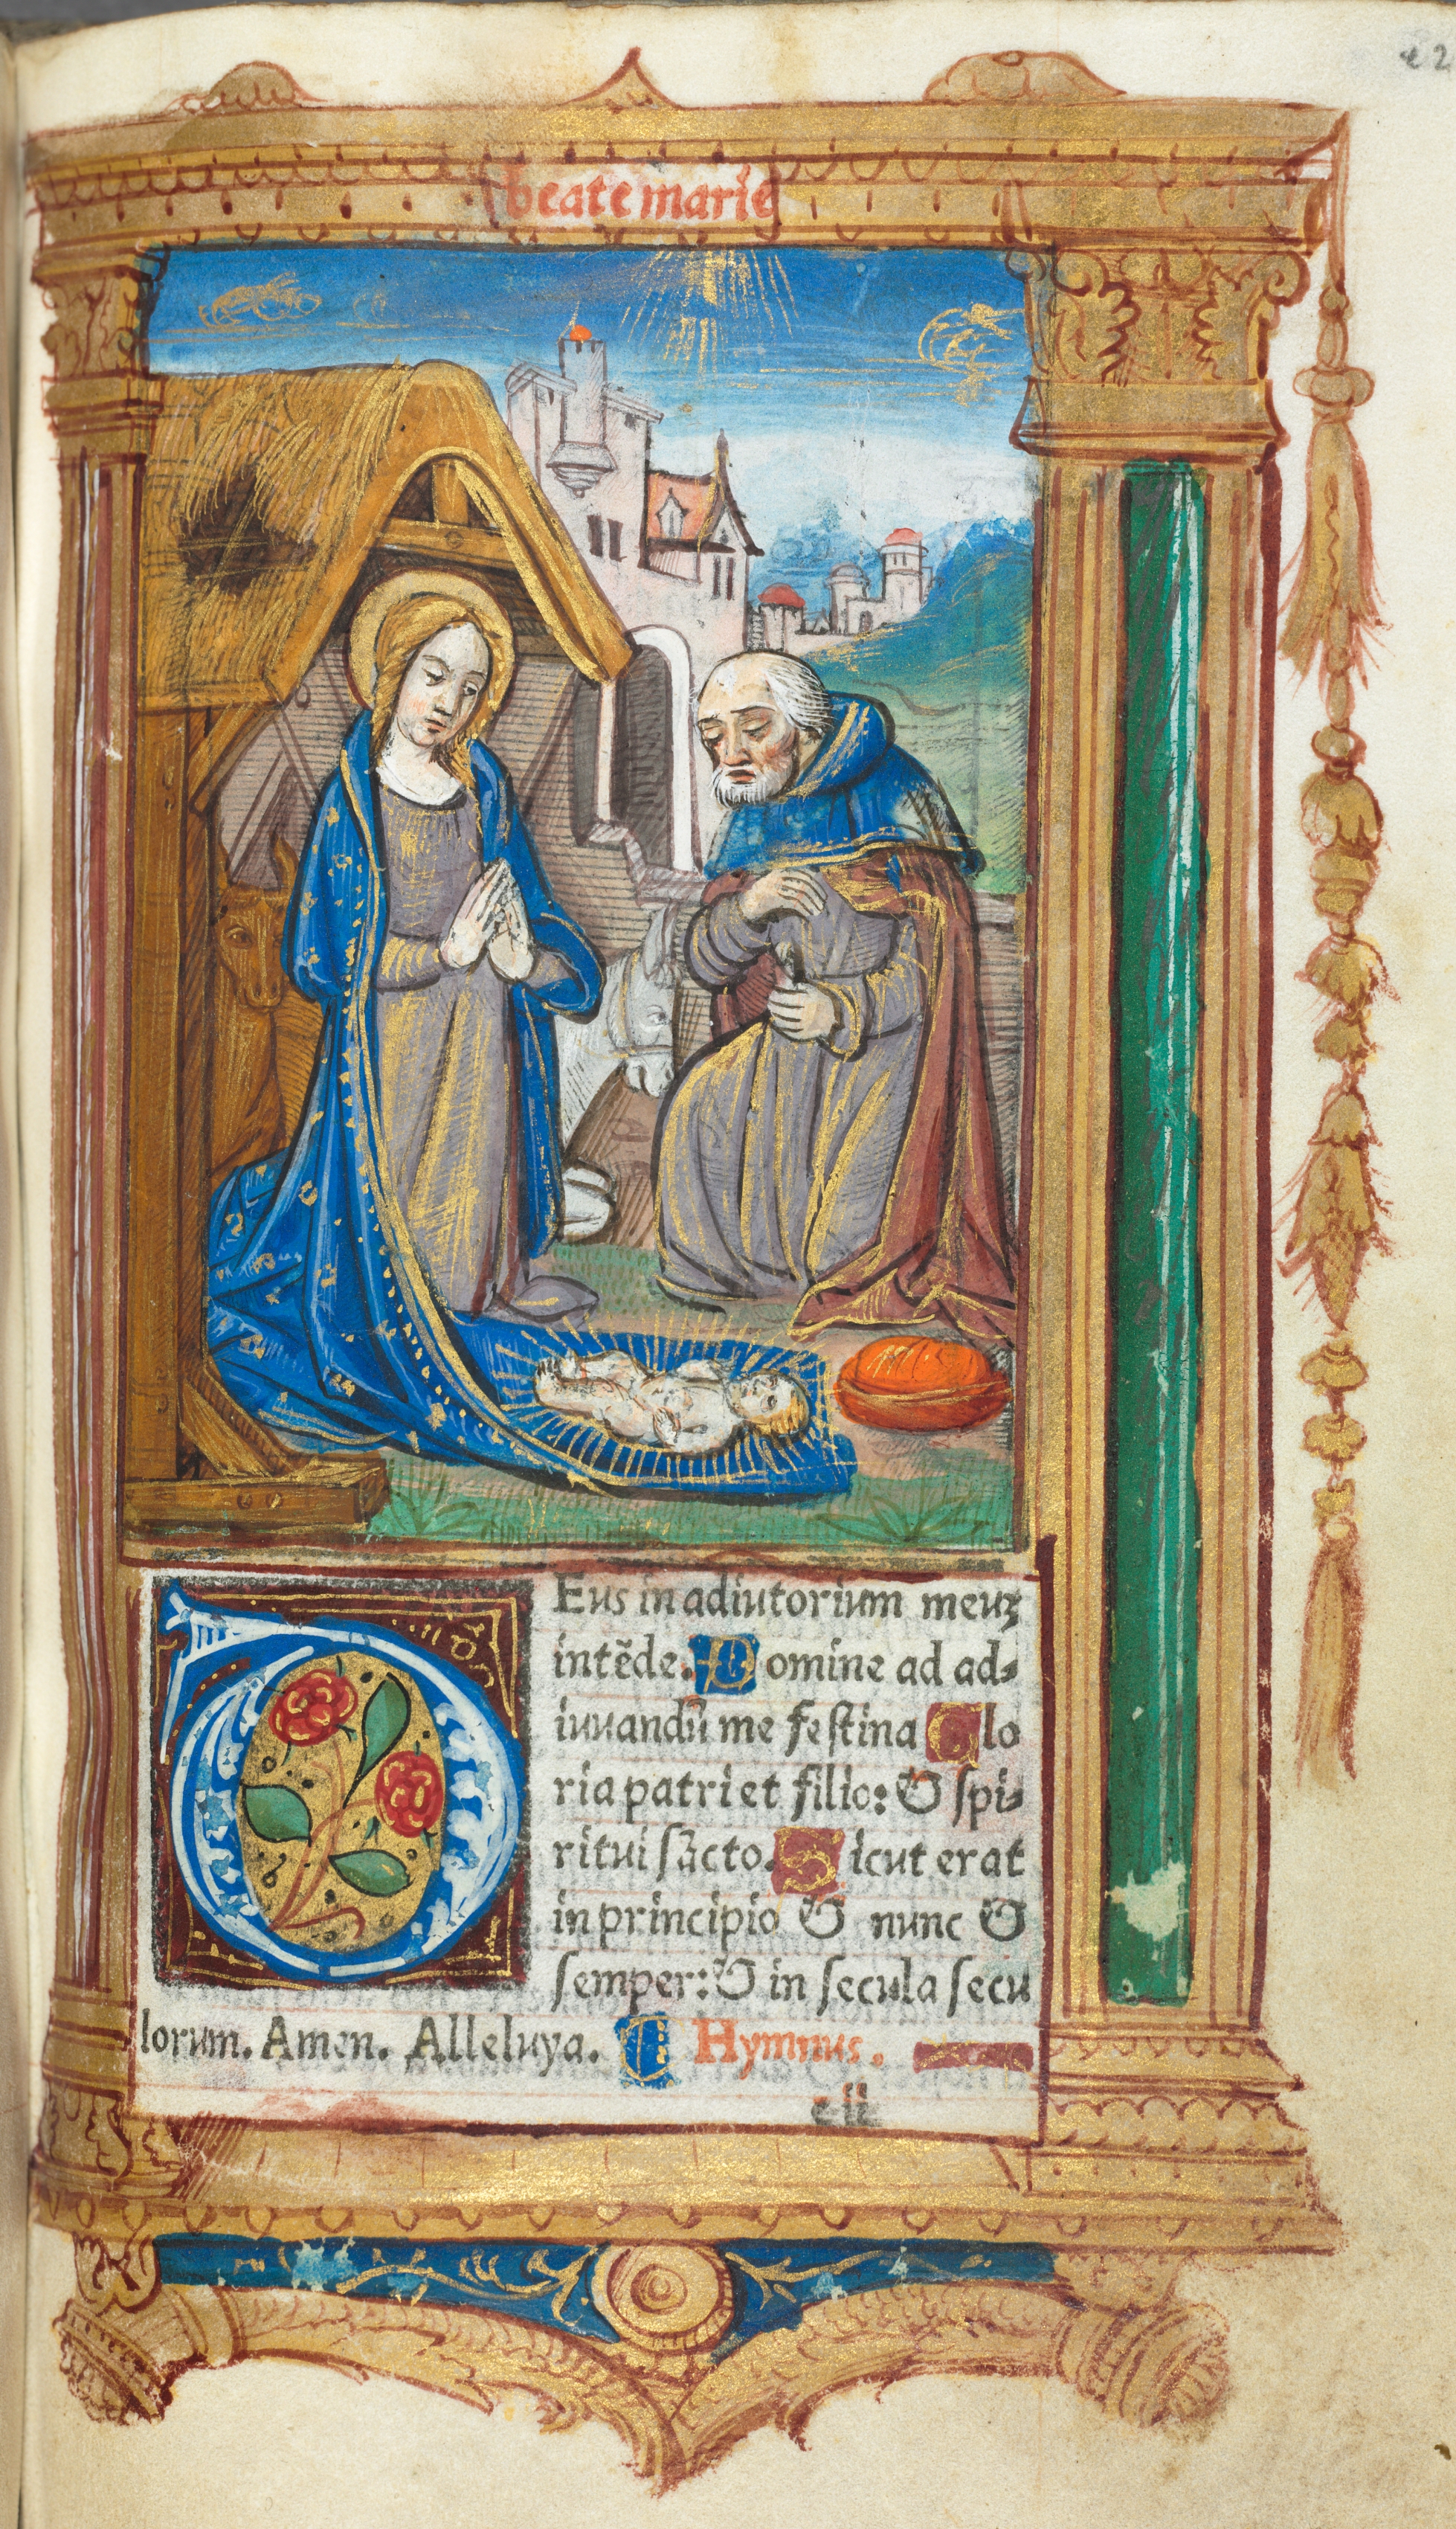 beate marie
DEus in adiutorium meuꝫ
intẽde. Domine ad ad-
iuuandũ me festina Glo
ria patri et filio: & spi-
ritui sãcto. Sicut erat
in principio & nunc &
semper: & in secula secu
lorum. Amen. Alleluya. ¶ Hymnus.